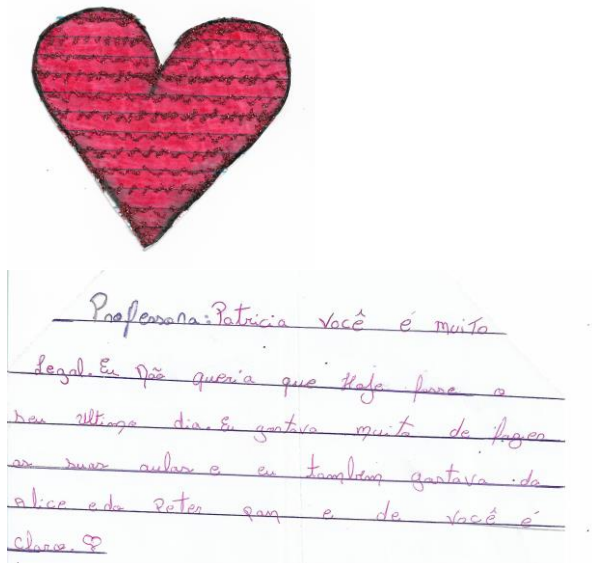 Professora: Patricia você é muito
legal. Eu não queria que Hoje fosse o
seu ultimo dia. Eu gostava muito de fazer
as suas aulas e eu também gostava da
alice e do Peter pan e de você é
claro.